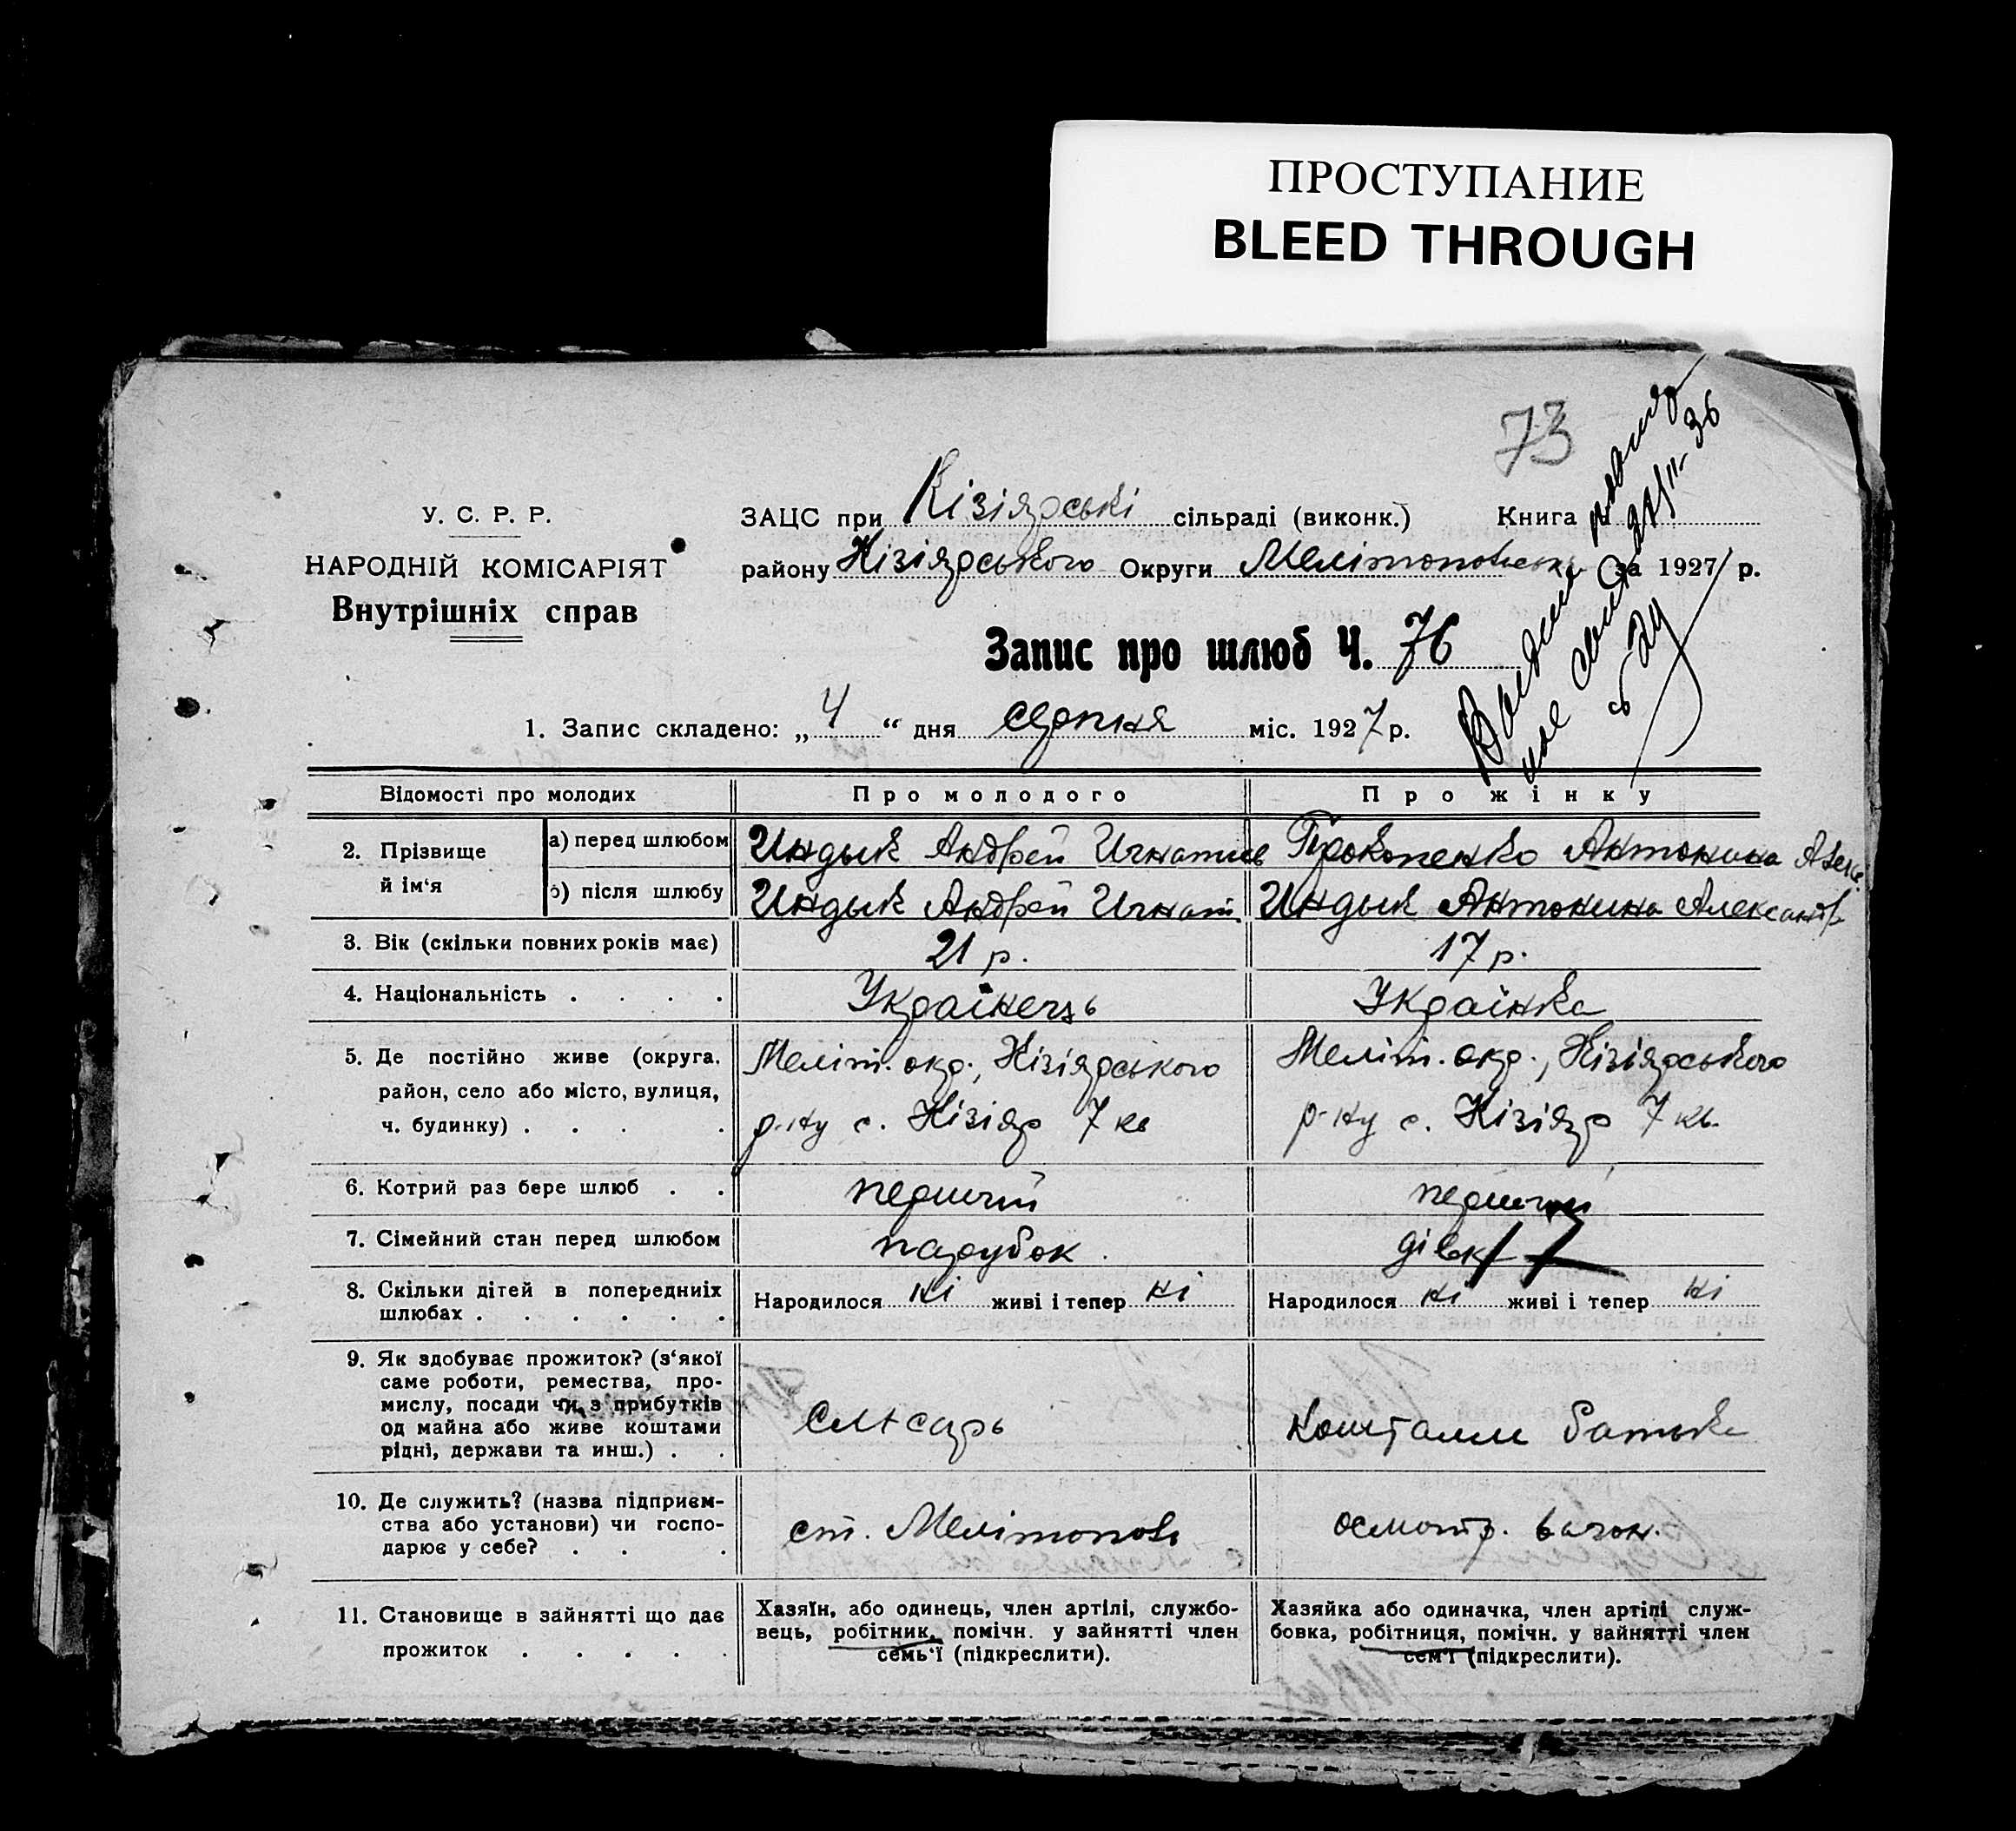 ПРОСТУПАНИЕ
BLEED THROUGH
73
У. С. Р. Р.
НАРОДНІЙ КОМІСАРІЯТ
Внутрішніх справ
ЗАЦС при Кізіярські сільраді (виконк.) Книга
району Кізіярського Округи Мелітопольськ за 1927 р.
Запис про шлюб Ч. 76
1. Запис складено: „ 4 “ дня серпня міс. 1927 р.
Відомості про молодих Про молодого Про жінку
2. Прізвище й ім‘я
а) перед шлюбом Индык Андрей Игнатьев Прокопенко Антонина Алекс.
б) після шлюбу Индык Андрей Игнат. Индык Антонина Александр
3. Вік (скільки повних років має) 21 р. 17 р.
4. Національність . . . . Українець Українка
5. Де постійно живе (округа, Меліт. окр., Кізіярського Меліт. окр., Кізіярського
район, село або місто, вулиця, р-ну с. Кізіяр 7 кв р-ну с. Кізіяр 7 кв.
ч. будинку) . . . .
6. Котрий раз бере шлюб . . перший перший
7. Сімейний стан перед шлюбом парубок . дівк 17
8. Скільки дітей в попередніх Народилося ні живі і тепер ні Народилося ні живі і тепер ні
шлюбах . . . . . .
9. Як здобуває прожиток? (з‘якої
саме роботи, ремества, про-
мислу, посади чи з прибутків
од майна або живе коштами
рідні, держави та инш.) . .
слюсарь коштами батька
10. Де служить? (назва підприєм-
ства або установи) чи госпо-
дарює у себе? . . .
ст. Мелітополь осмотр. вагон.
11. Становище в зайнятті що дає
прожиток . . . . .
Хазяїн, або одинець, член артілі, службо-
вець, робітник, помічн. у зайнятті член
семь‘ї (підкреслити).
Хазяйка або одиначка, член артілі служ-
бовка, робітниця, помічн. у зайнятті член
сем‘ї (підкреслити).